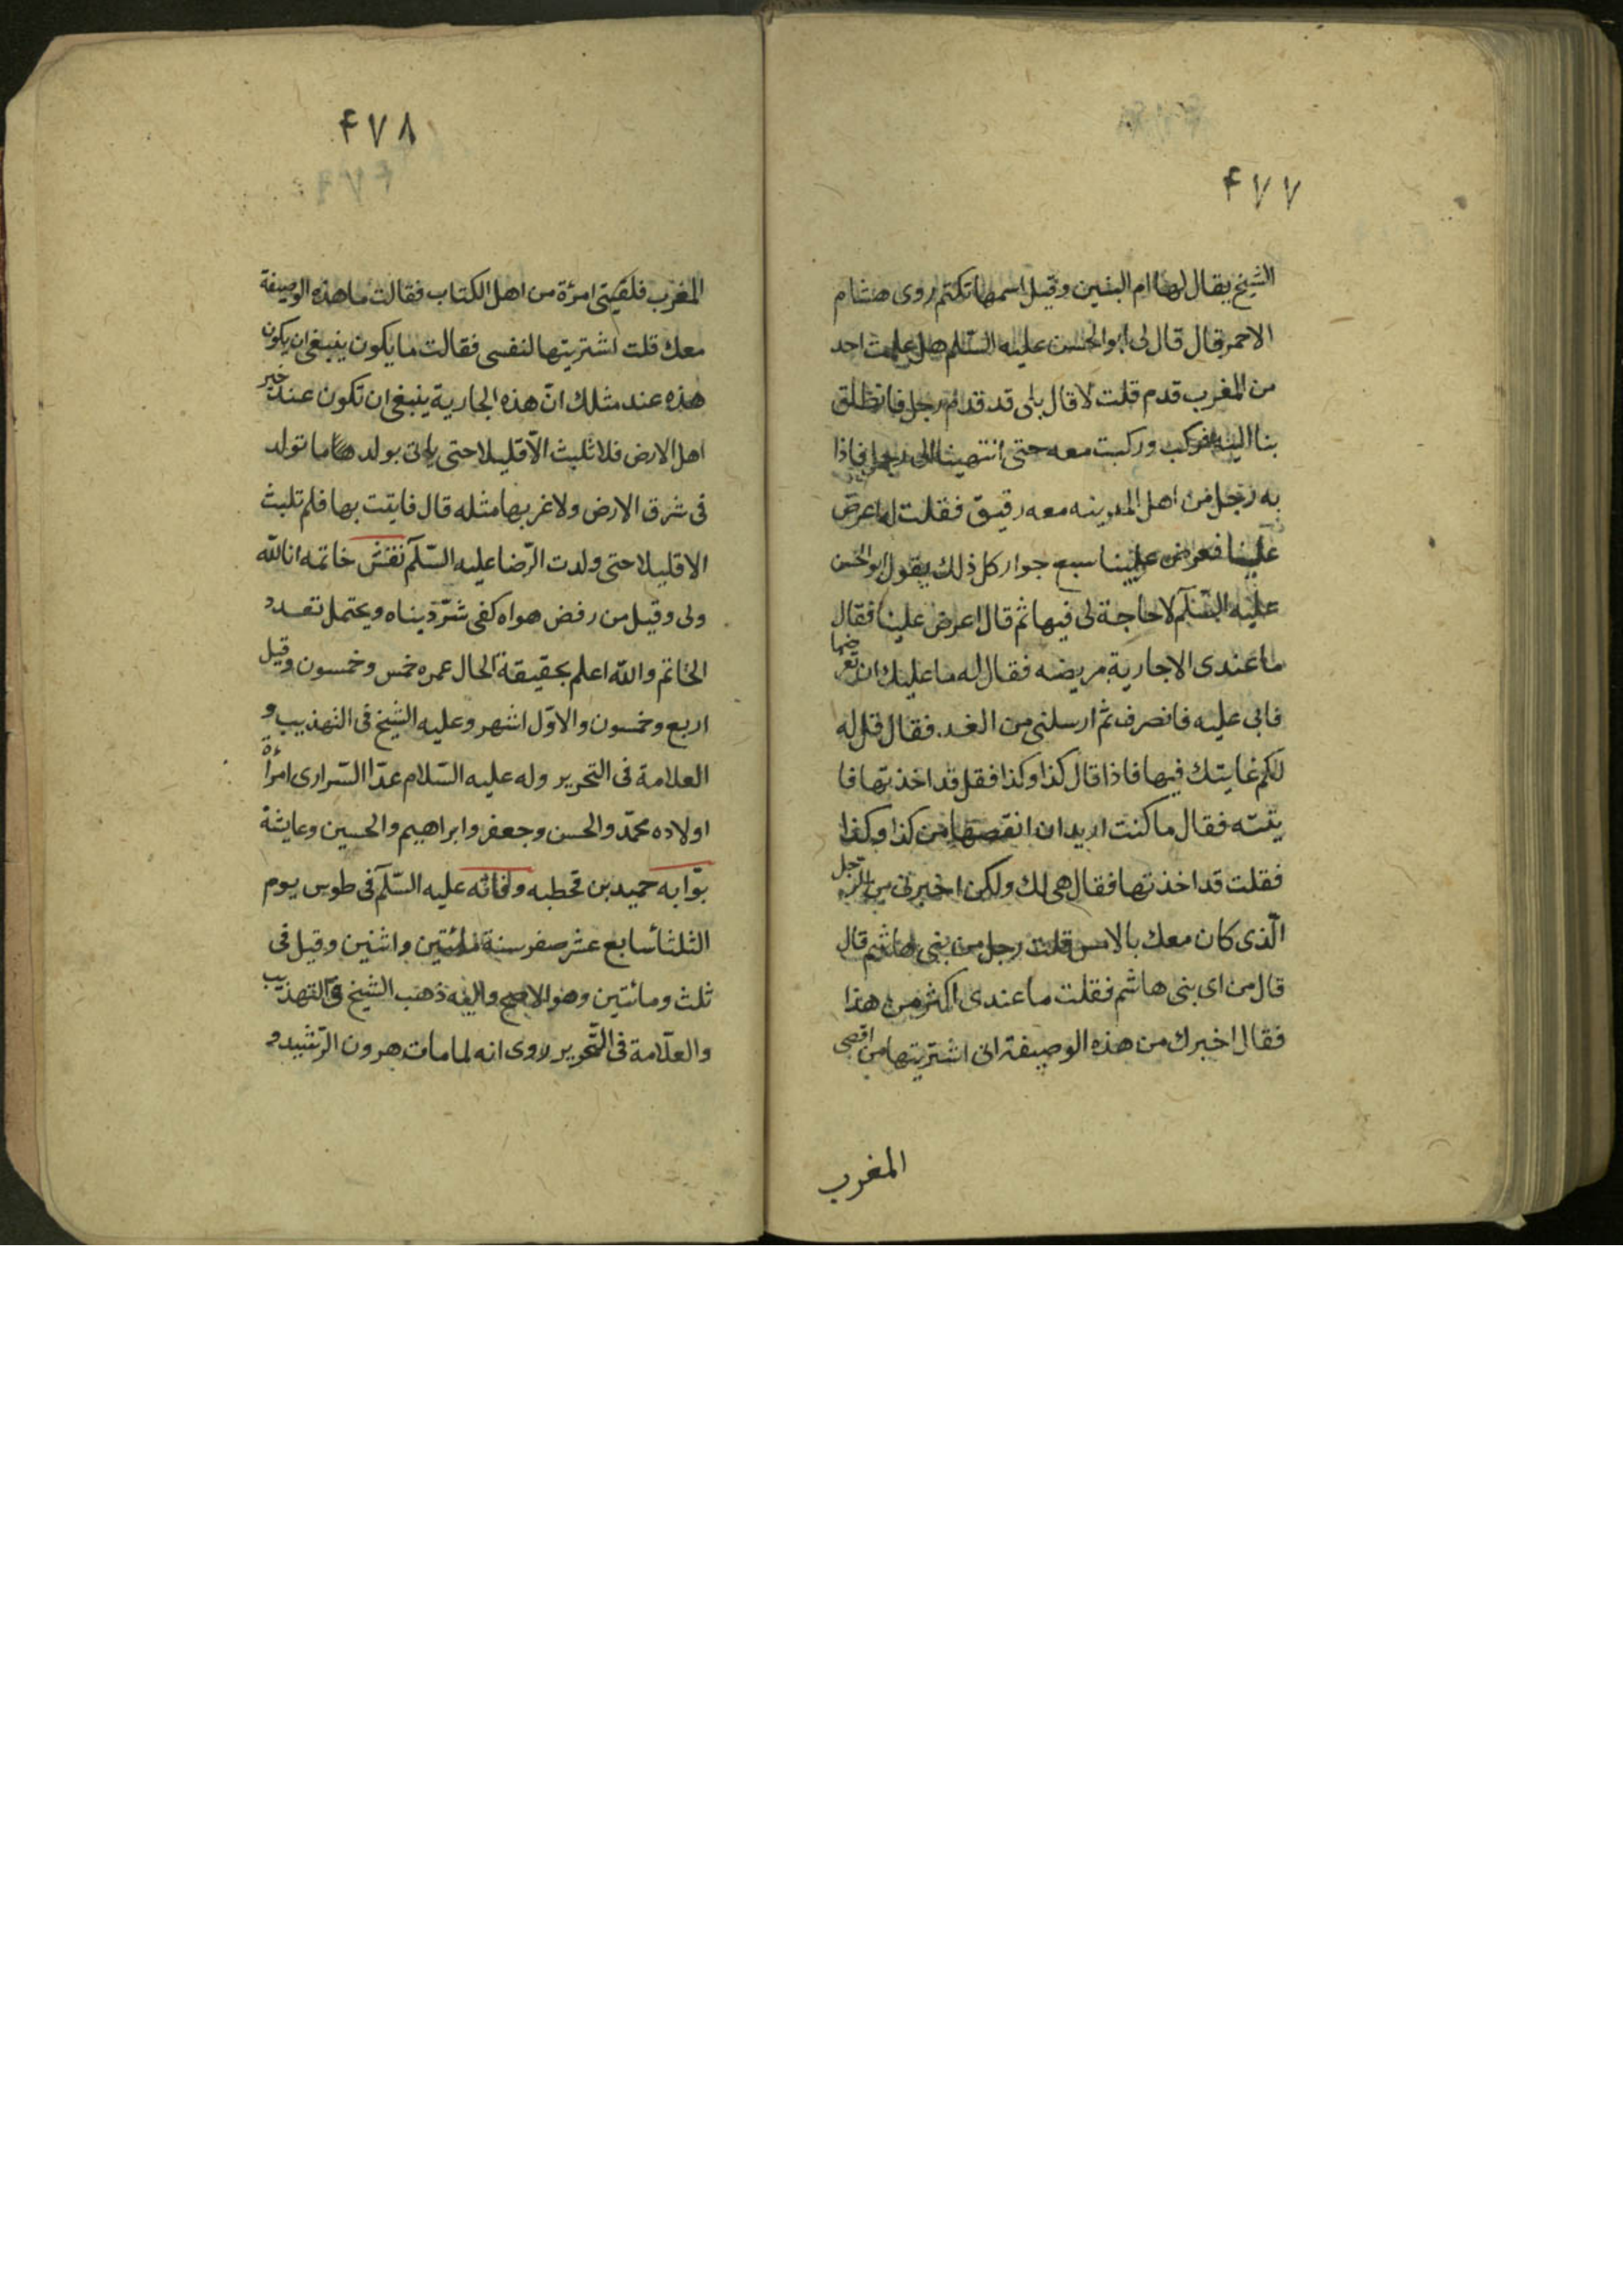 ۴۷۷
الشيخ يقال لها ام البنين وقيل اسمها تكتم روى هشام
الاحمر قال قال لى ابو الحسن عليه السّلم هل علمت احد
من المغرب قدم قلت لا قال بلى قد قدم رجل فانطلق
بنا اليه فركب وركبت معه حتى انتهينا الى رجل فاذا
به رجل من اهل المدينه معه رقيق فقلت له اعرض
علينا فعرض علينا سبع جوار كل ذلك يقول ابو الحسن
عليه السّلم لا حاجة لى فيها ثم قال اعرض علينا فقال
ما عندى الا جارية مريضه فقال له ما عليك ان تعرضها
فابى عليه فانصرف ثم ارسلنى من الغد فقال قل له
لكم غايتك فيها فاذا قال كذا وكذا فقل قد اخذتها فا
يتته فقال ما كنت اريد ان انقصها من كذا وكذا
فقلت قد اخذتها فقال هى لك ولكن اخبرنى من الرّجل
الّذى كان معك بالامس قلت رجل من بنى هاشم قال
قال من اى بنى هاشم فقلت ما عندى اكثر من هذا
فقال اخبرك من هذه الوصيفة انى اشتريتها من اقصى
المغرب
۴۷۸
المغرب فلقيتنى امرئة من اهل الكتاب فقالت ما هذه الوصيفة
معك قلت اشتريتها لنفسى فقالت ما يكون ينبغى ان يكون
هذه عند مثلك انّ هذه الجارية ينبغى ان تكون عند خير
اهل الارض فلا تلبث الّا قليلا حتى ياتى بولد ما تولد
فى شرق الارض ولا غربها مثله قال فايتت بها فلم تلبث
الا قليلا حتى ولدت الرّضا عليه السّلم نقش خاتمه انا لله
ولى وقيل من رفض هواه كفى شرّ ديناه ويحتمل تعدد
الخاتم والله اعلم بحقيقة الحال عمره خمس وخمسون وقيل
اربع وخمسون والاوّل اشهر وعليه الشيخ فى التهذيب و
العلامة فى التحرير وله عليه السّلام عدّا السّرارى امرأة
اولاده محمّد والحسن وجعفر وابراهيم والحسين وعايشة
بوّابه حميد بن قحطبه وفاته عليه السّلم فى طوس يوم
الثلثا سابع عشر صفر سنة مائتين واثنين وقيل فى
ثلث ومائتين وهو الاصح واليه ذهب الشيخ فى التهذيب
والعلّامة فى التّحرير روى انه لما مات هرون الرّشيد و